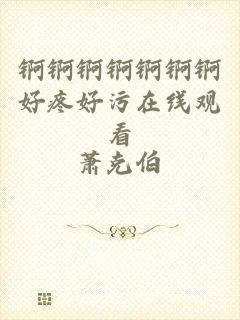 锕锕锕锕锕锕锕
好疼好污在线观
看
萧克伯